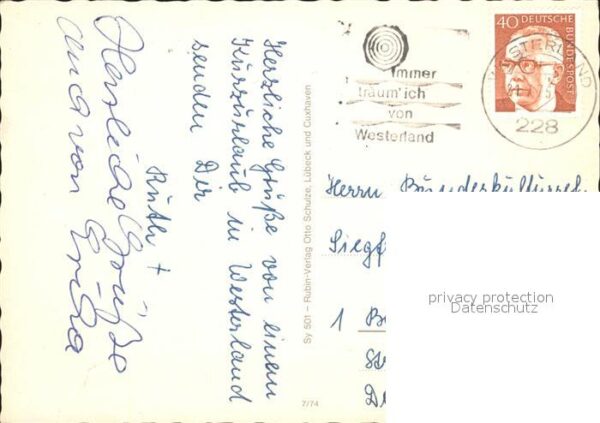 Herzliche Grüße von einem
Kurzurlaub in Westerland
senden Dir
Ruth +
Herzliche Grüße
auch von Erika
Sy 501 – Rubin-Verlag Otto Schulze, Lübeck und Cuxhaven
7/74
immer
träum' ich
von
Westerland
40 DEUTSCHE
BUNDESPOST
WESTERLAND
228
Herrn
Siegf
1 B
privacy protection
Datenschutz